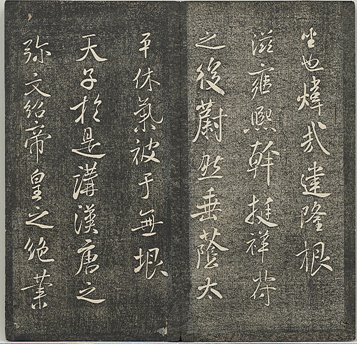 生也煒哉建隆根
滋雍熙幹挺祥符
之後蔚然垂蔭太
平休氣被于無垠
天子於是講漢唐之
弥文紹帝皇之絶業